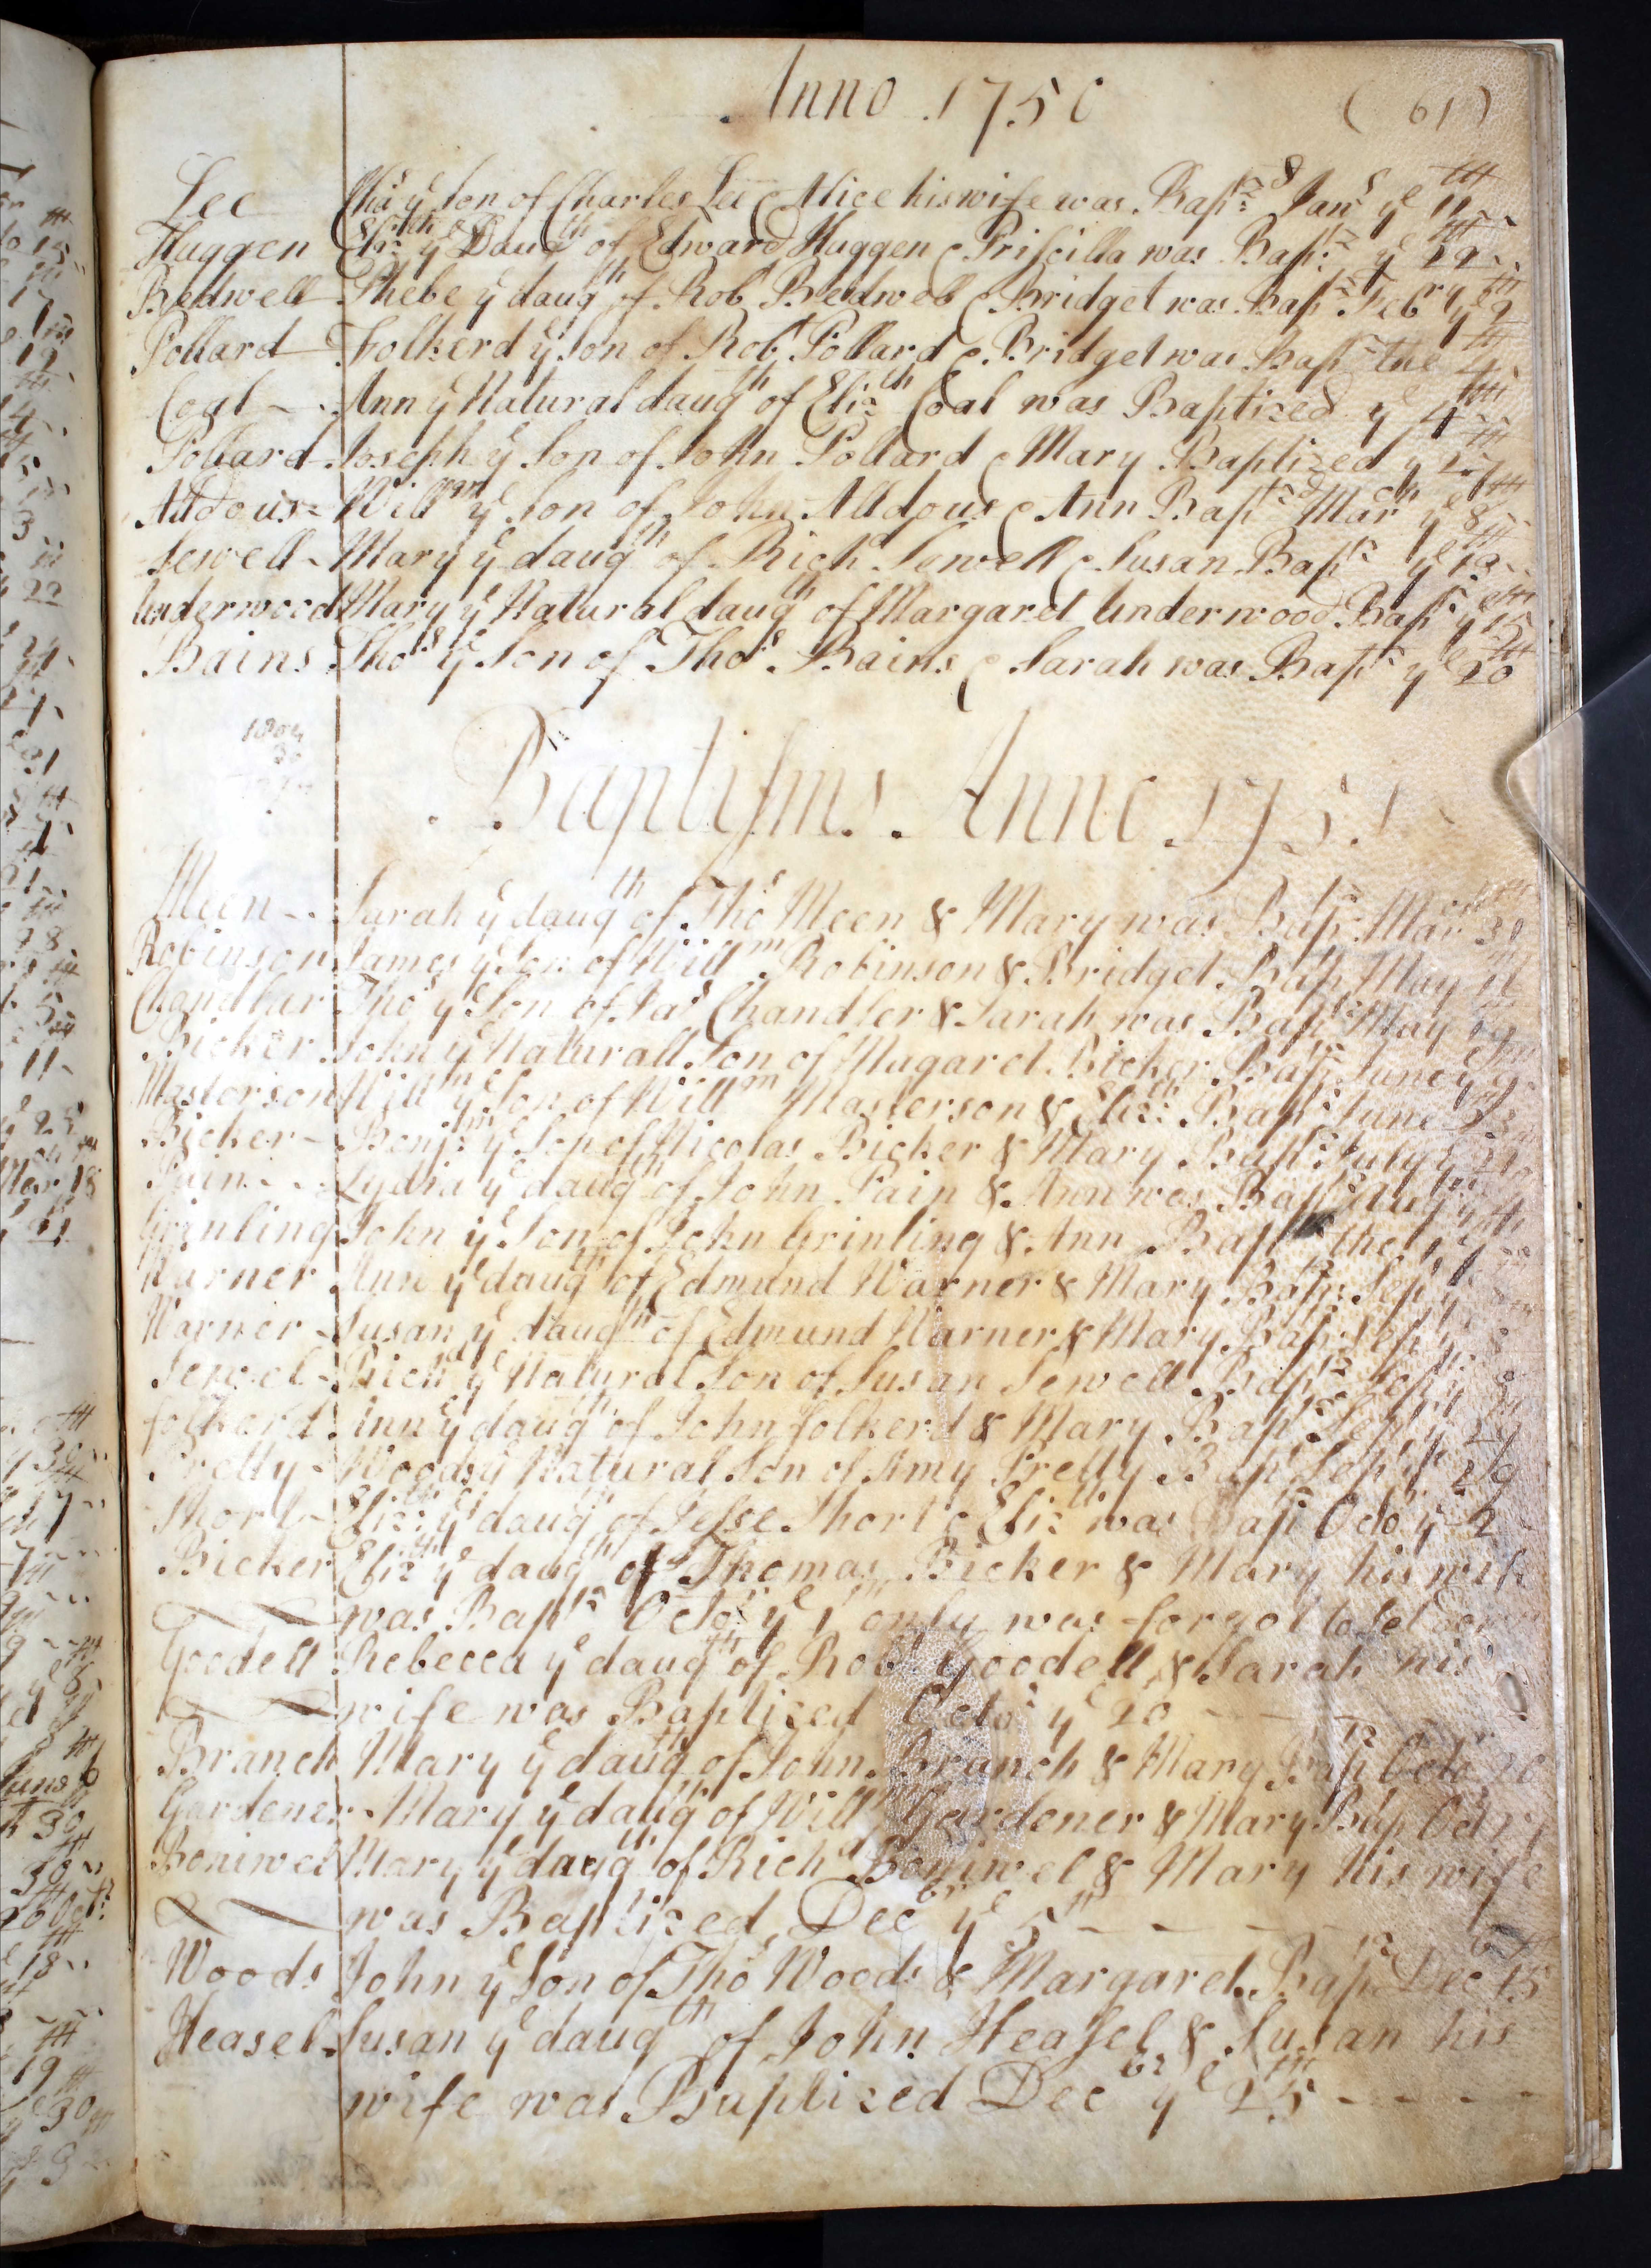 Anno 1750 (61)
Lee Cha.s ye Son of Charles Lee & Alice his wife was Bap.tz'd Jan.y ye 11th
Huggen Eliz.th ye Daug.th of Edward Huggen & Priscilla was Bap.tz ye 29
Bedwell Phebe ye daug.th of Rob.t Bedwell & Bridget was Bap.tz Feb.ry ye 2
Pollard Folkerd ye Son of Rob.t Pollard & Bridget was Bap.tz the 4th
Coal Ann ye Natural daug.th of Eliz.th Coal was Baptized ye 4th
Pollard Joseph ye Son of John Pollard & Mary Baptized ye
Alldous Will.iam ye Son of John Alldous & Ann Bap.tz'd Mar.ch ye 8th
Sewell Mary ye daug.th of Rich.d Sewell & Susan Bap.tz ye 10
Underwood Mary ye Natural daug.th of Margaret Underwood Bap.tz ye 15th
Bains Tho.s ye Son of Tho.s Bains & Sarah was Bap.tz ye 20th
1804
Baptisms Anno 1751
Meen Sarah ye daug.th of Tho.s Meen & Mary was Bap.tz Mar.ch 31
Robinson James ye Son of Will.m Robinson & Bridget Bap.tz May 11
Chandler Tho.s ye Son of Ja.s Chandler & Sarah was Bap.tz May 19
Bicker John ye Naturall Son of Magaret Bicker Bap.tz June ye 9
Masterson Will.m ye Son of Will.m Masterson & Eliz.th Bap.tz June 23
Bicker Benj.mn ye Son of Nicolas Bicker & Mary Bap.tz July ye 21
Pain Lydia ye daug.th of John Pain & Ann was Bap.tz Aug ye
Grinling John ye Son of John Grinling & Ann Bap.tz the
Warner Ann ye daug.th of Edmund Warner & Mary Bap.tz Sep.t ye 8
Warner Susan ye daug.th of Edmund Warner & Mary Bap.tz Sep.t ye 8
Sewel Rich.d ye Natural Son of Susan Sewell Bap.tz Sep.t ye 8
folkerd Ann ye daug.th of John folkerd & Mary Bap.tz Sep.t ye 29
Pretty Woods ye Natural Son of Amy Pretty Bap.t Sep.t ye 29
Short Eliz.th ye daug.th of Jesse Short & Eliz.th was Bap.tz Octo.r ye 2
Bicker Eliz.th ye daug.th of Thomas Bicker & Mary his wife
was Bap.tz Octo.r ye 1st only was forgot to set down
Goodell Rebecca ye daug.th of Rob.t Goodell & Sarah his
wife was Baptized Octo.r ye 20
Branch Mary ye daug.th of John Branch & Mary Bap.tz Octo.r 20
Gardener Mary ye daug.th of Will.m Gardener & Mary Bap.t Oct.r
Boniwel Mary ye daug.th of Rich.d Boniwel & Mary his wife
was Baptized Dec.br ye 5th
Woods John ye Son of Tho.s Woods & Margaret Bap.tz Dec.br 15th
Heasel Susan ye daug.th of John Heasel & Susan his
wife was Baptized Dec.br ye 25th